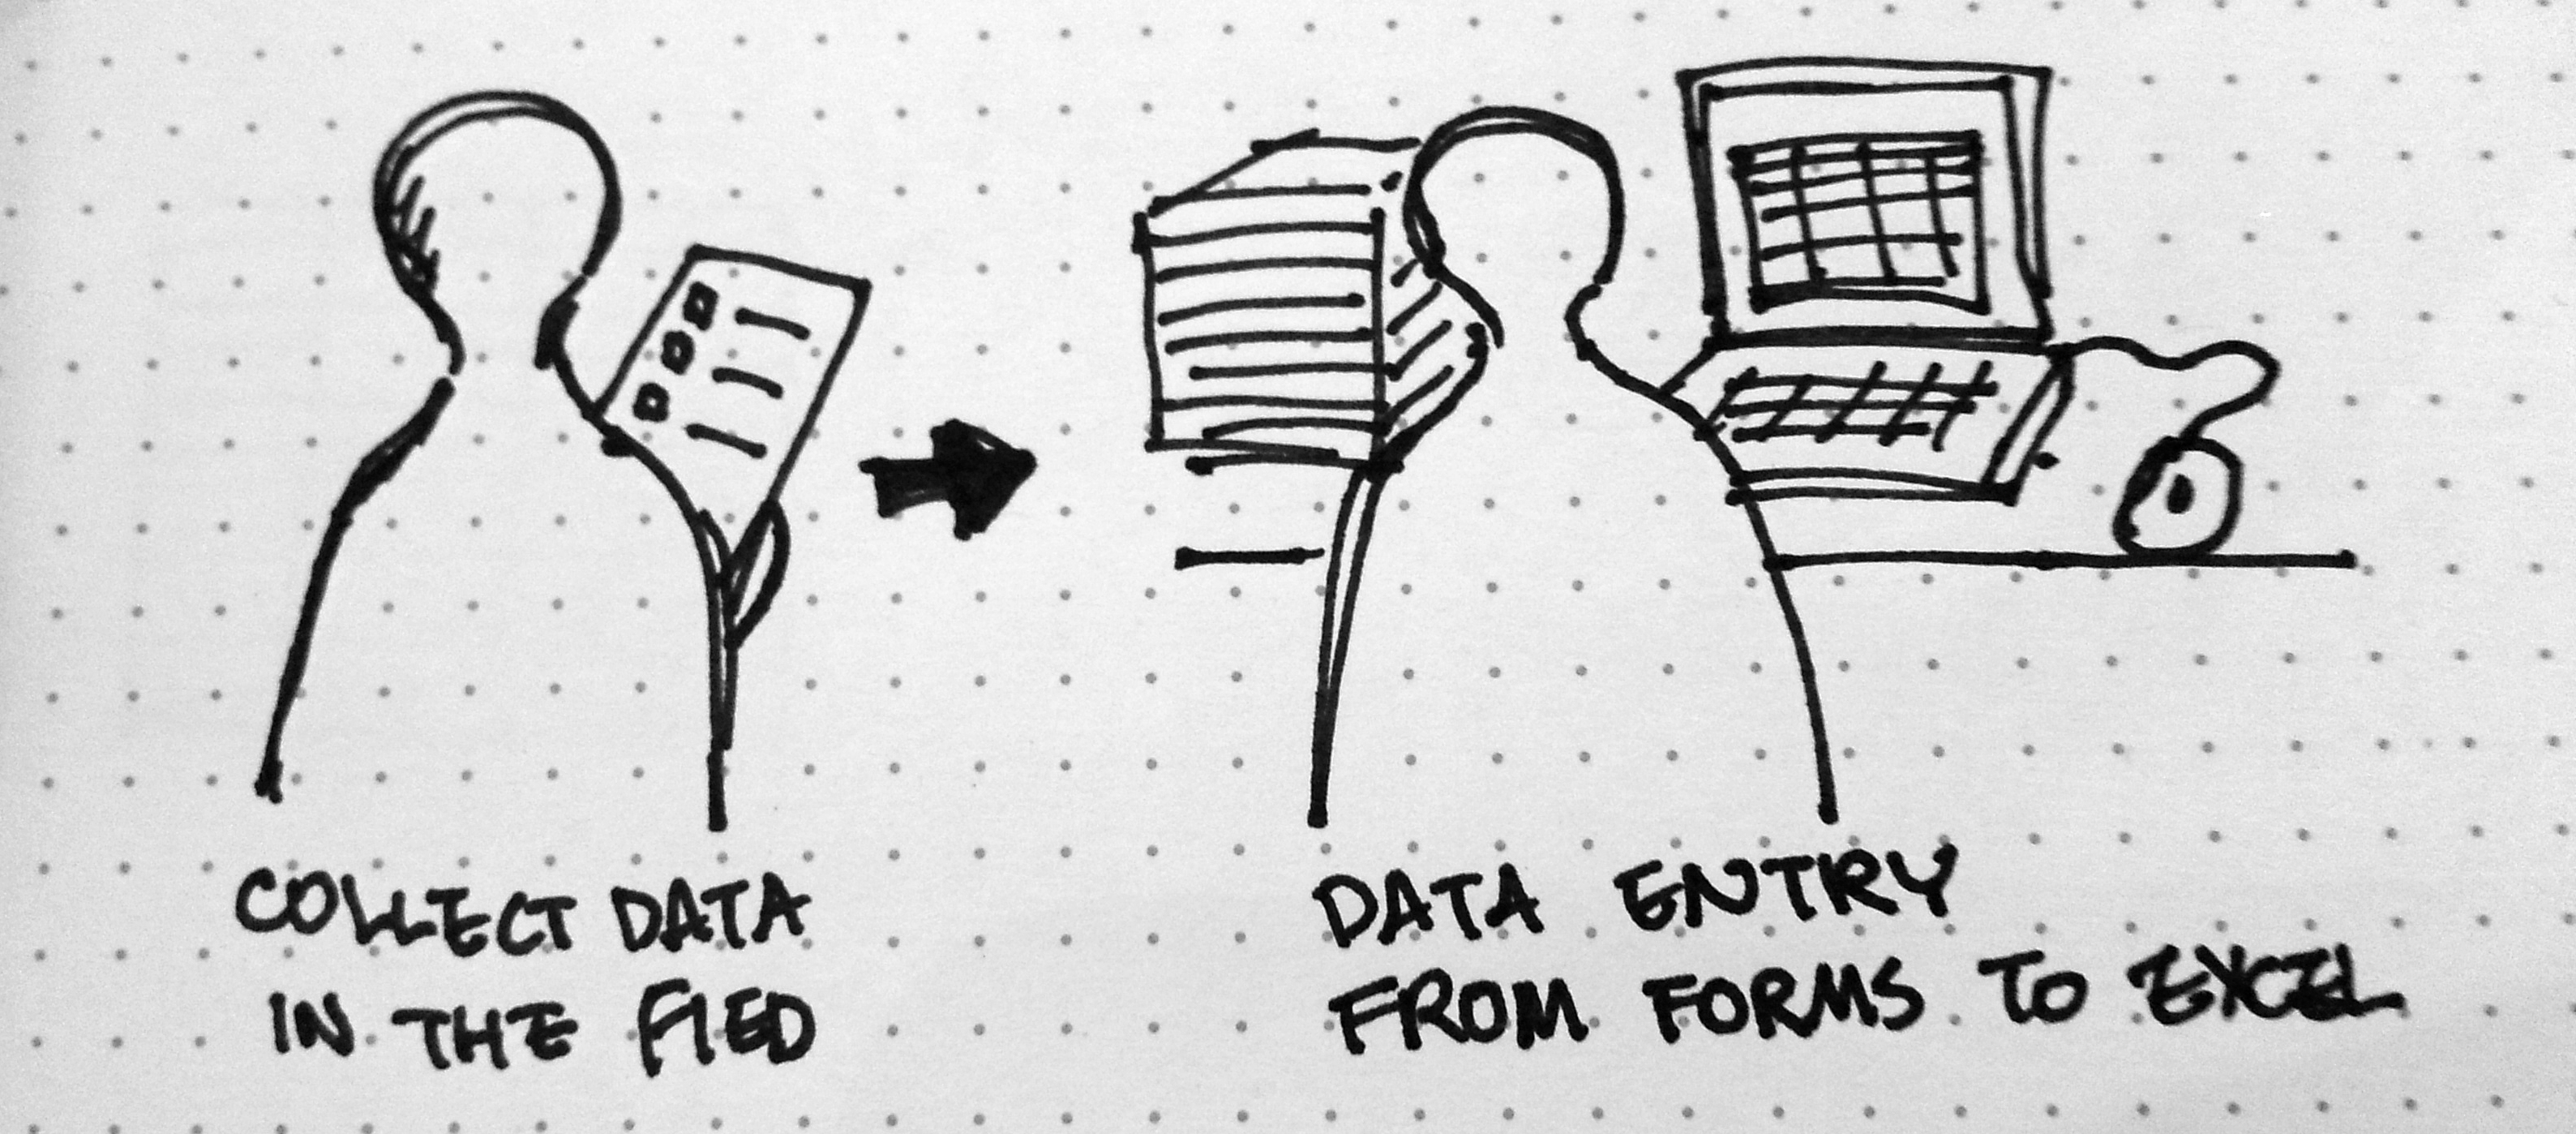 COLLECT DATA
IN THE FIED
DATA ENTRY
FROM FORMS TO EXCEL